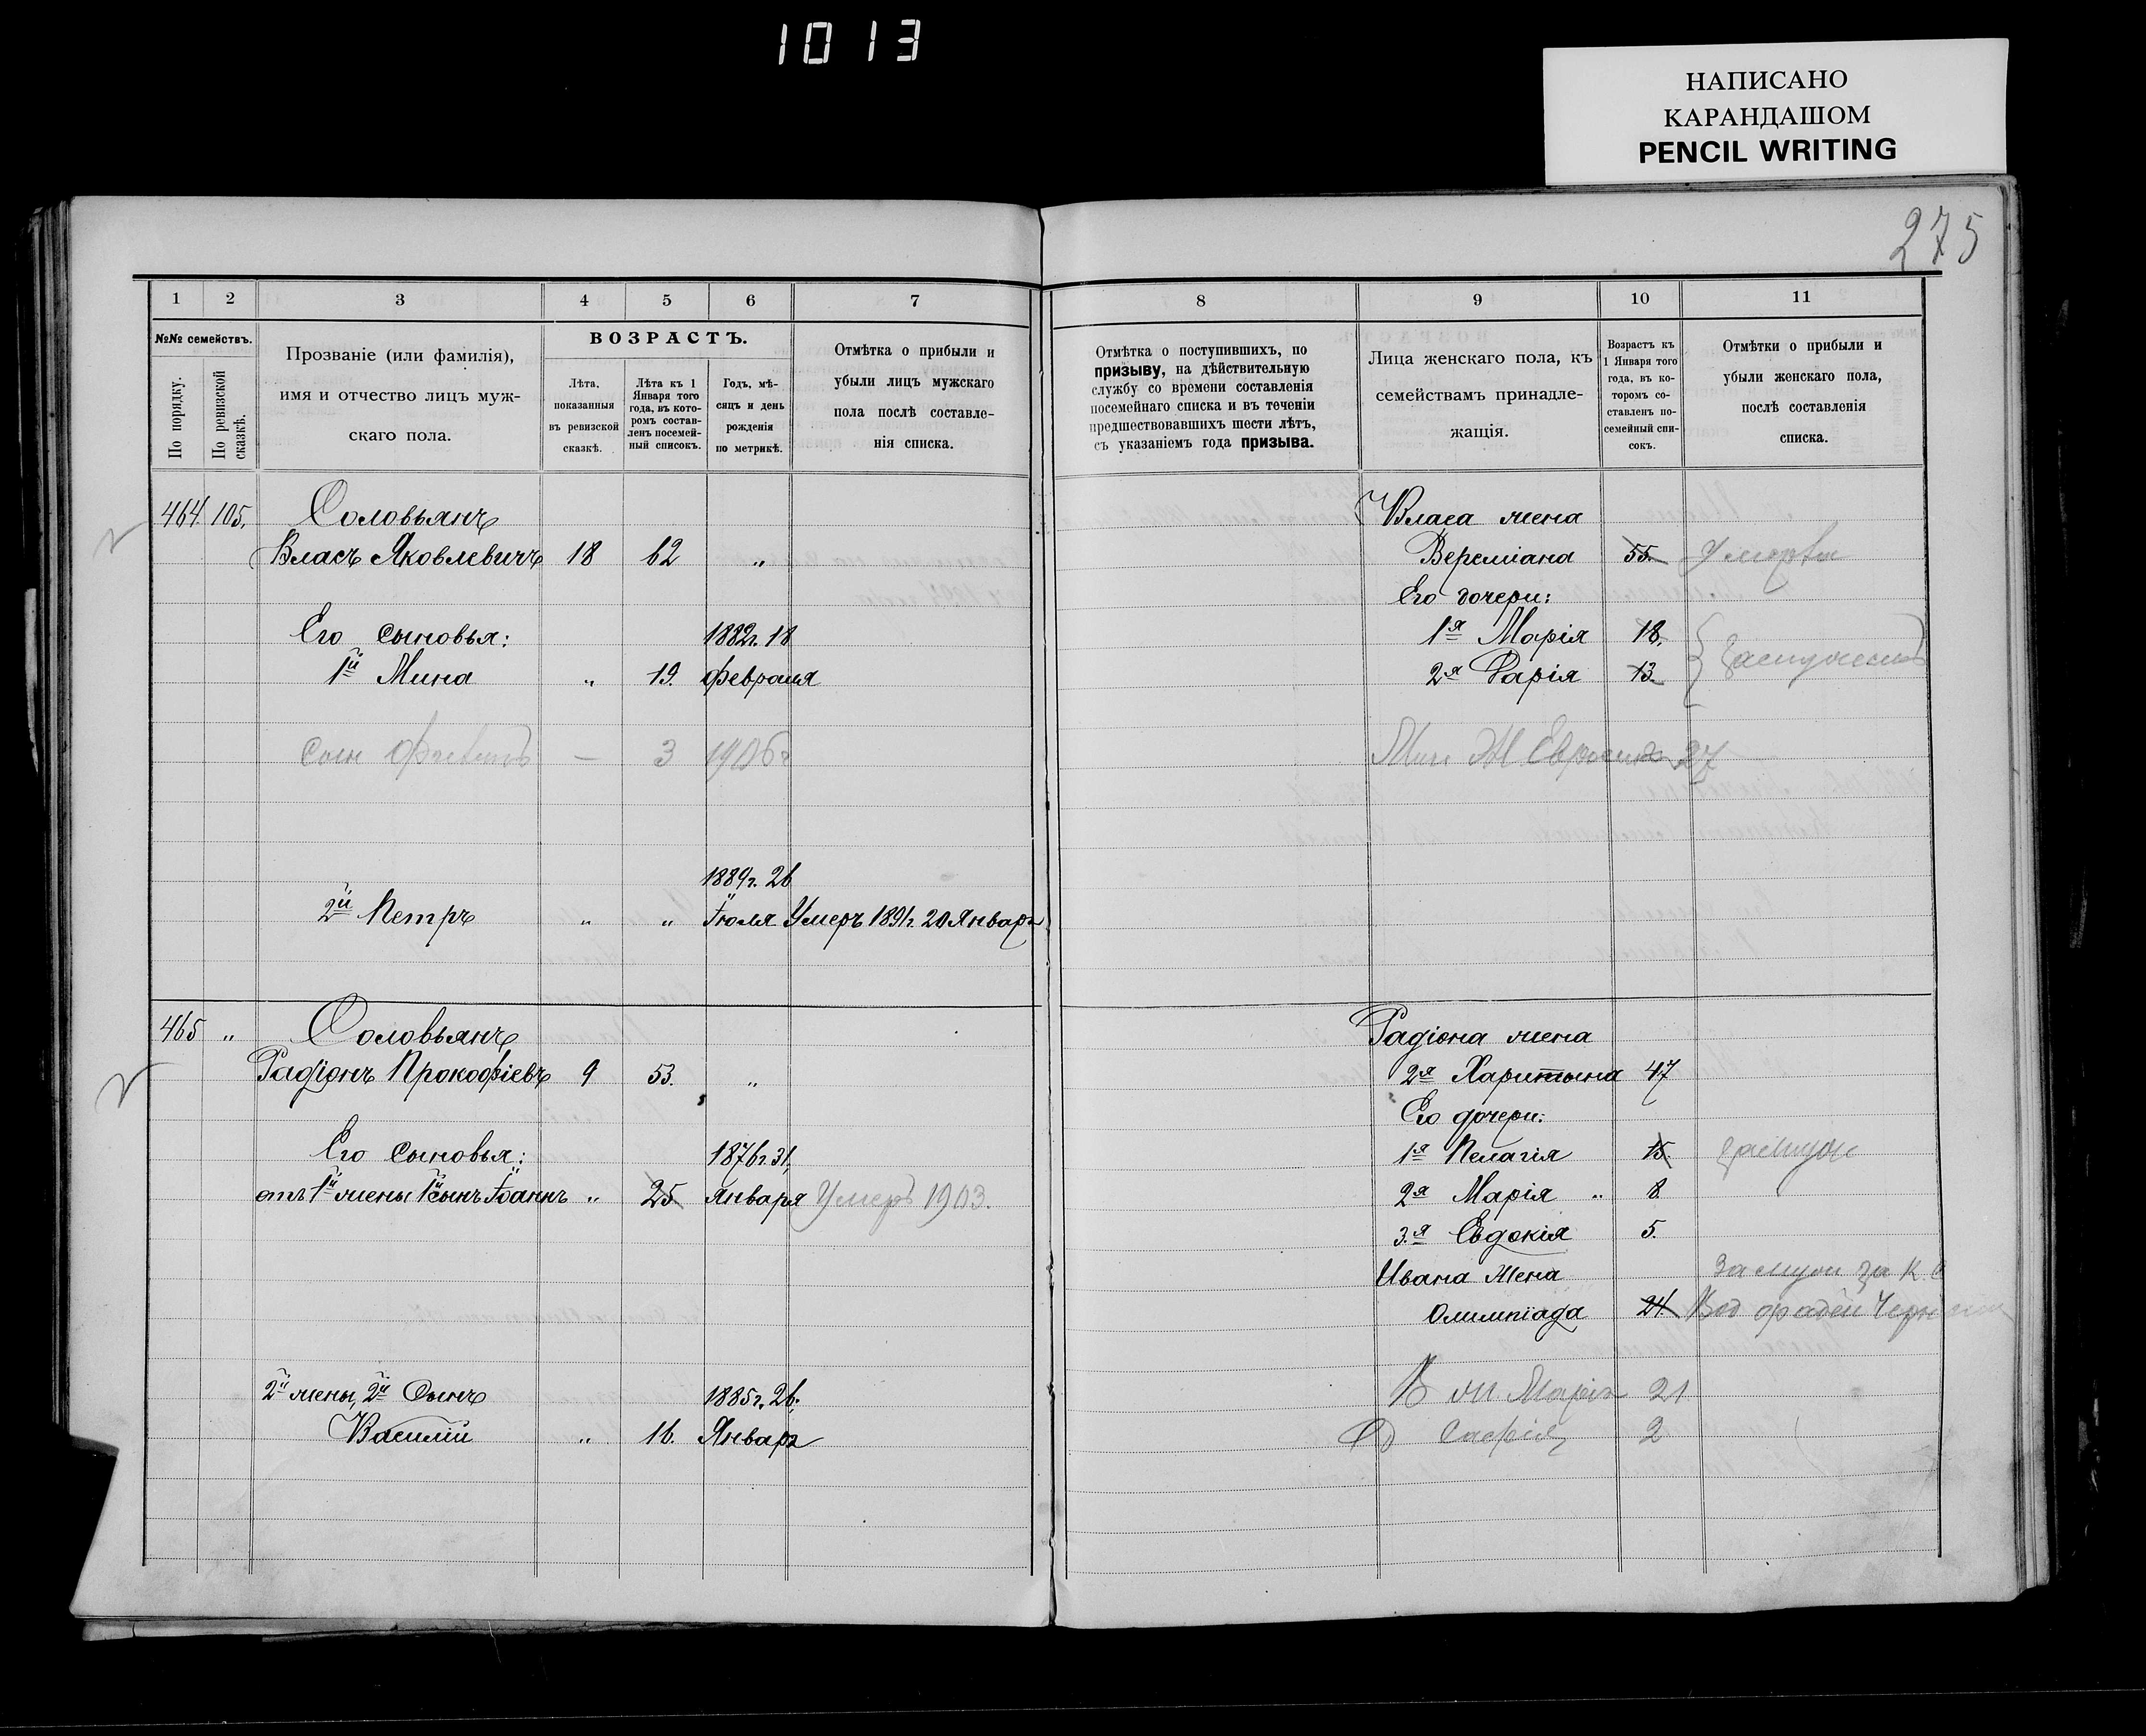 1013
НАПИСАНО
КАРАНДАШОМ
PENCIL WRITING
275
1 2 3 4 5 6 7
№№ семействъ.
По порядку.
По ревизской сказкѣ.
Прозваніе (или фамилія),
имя и отчество лицъ муж-
скаго пола.
ВОЗРАСТЪ.
Лѣта,
показанныя
въ ревизской
сказкѣ.
Лѣта къ 1
Января того
года, въ кото-
ромъ состав-
ленъ посемей-
ный списокъ.
Годъ, мѣ-
сяцъ и день
рожденія
по метрикѣ.
Отмѣтка о прибыли и
убыли лицъ мужскаго
пола послѣ составле-
нія списка.
464. 105. Соловьянъ
Власъ Яковлевичъ 18 62 "
Его сыновья: 1882г. 18
1й Мина " 19. февраля
сын 3 1906г
1889г. 26
2й Петръ " " Іюля Умеръ 1891г. 20 Января
465 " Соловьянъ
Радіонъ Прокофіевъ 9 53. "
Его сыновья: 1876г. 31,
отъ 1й жены 1й сынъ Іоаннъ " 25 января Умеръ 1903.
2й жены, 2й Сынъ 1885г. 26.
Василій " 16. Января
8 9 10 11
Отмѣтка о поступившихъ, по
призыву, на дѣйствительную
службу со времени составленія
посемейнаго списка и въ теченіи
предшествовавшихъ шести лѣтъ,
съ указаніемъ года призыва.
Лица женскаго пола, къ
семействамъ принадле-
жащія.
Возрастъ къ
1 Января того
года, въ ко-
торомъ со-
ставленъ по-
семейный спи-
сокъ.
Отмѣтки о прибыли и
убыли женскаго пола,
послѣ составленія
списка.
Власа жена
Вереміана 55.
Его дочери:
1я Марія 18.
2я Дарія 13.
Мин Ж. Евросина 27
Радіона жена
2я Харитына 47
Его дочери:
1я Пелагія 15. замуж
2я Марія " 8
3.я Евдокія 5.
Ивана Жена замуж за К
Олимпіада 24.
В ж. Марія 21
Софія 2